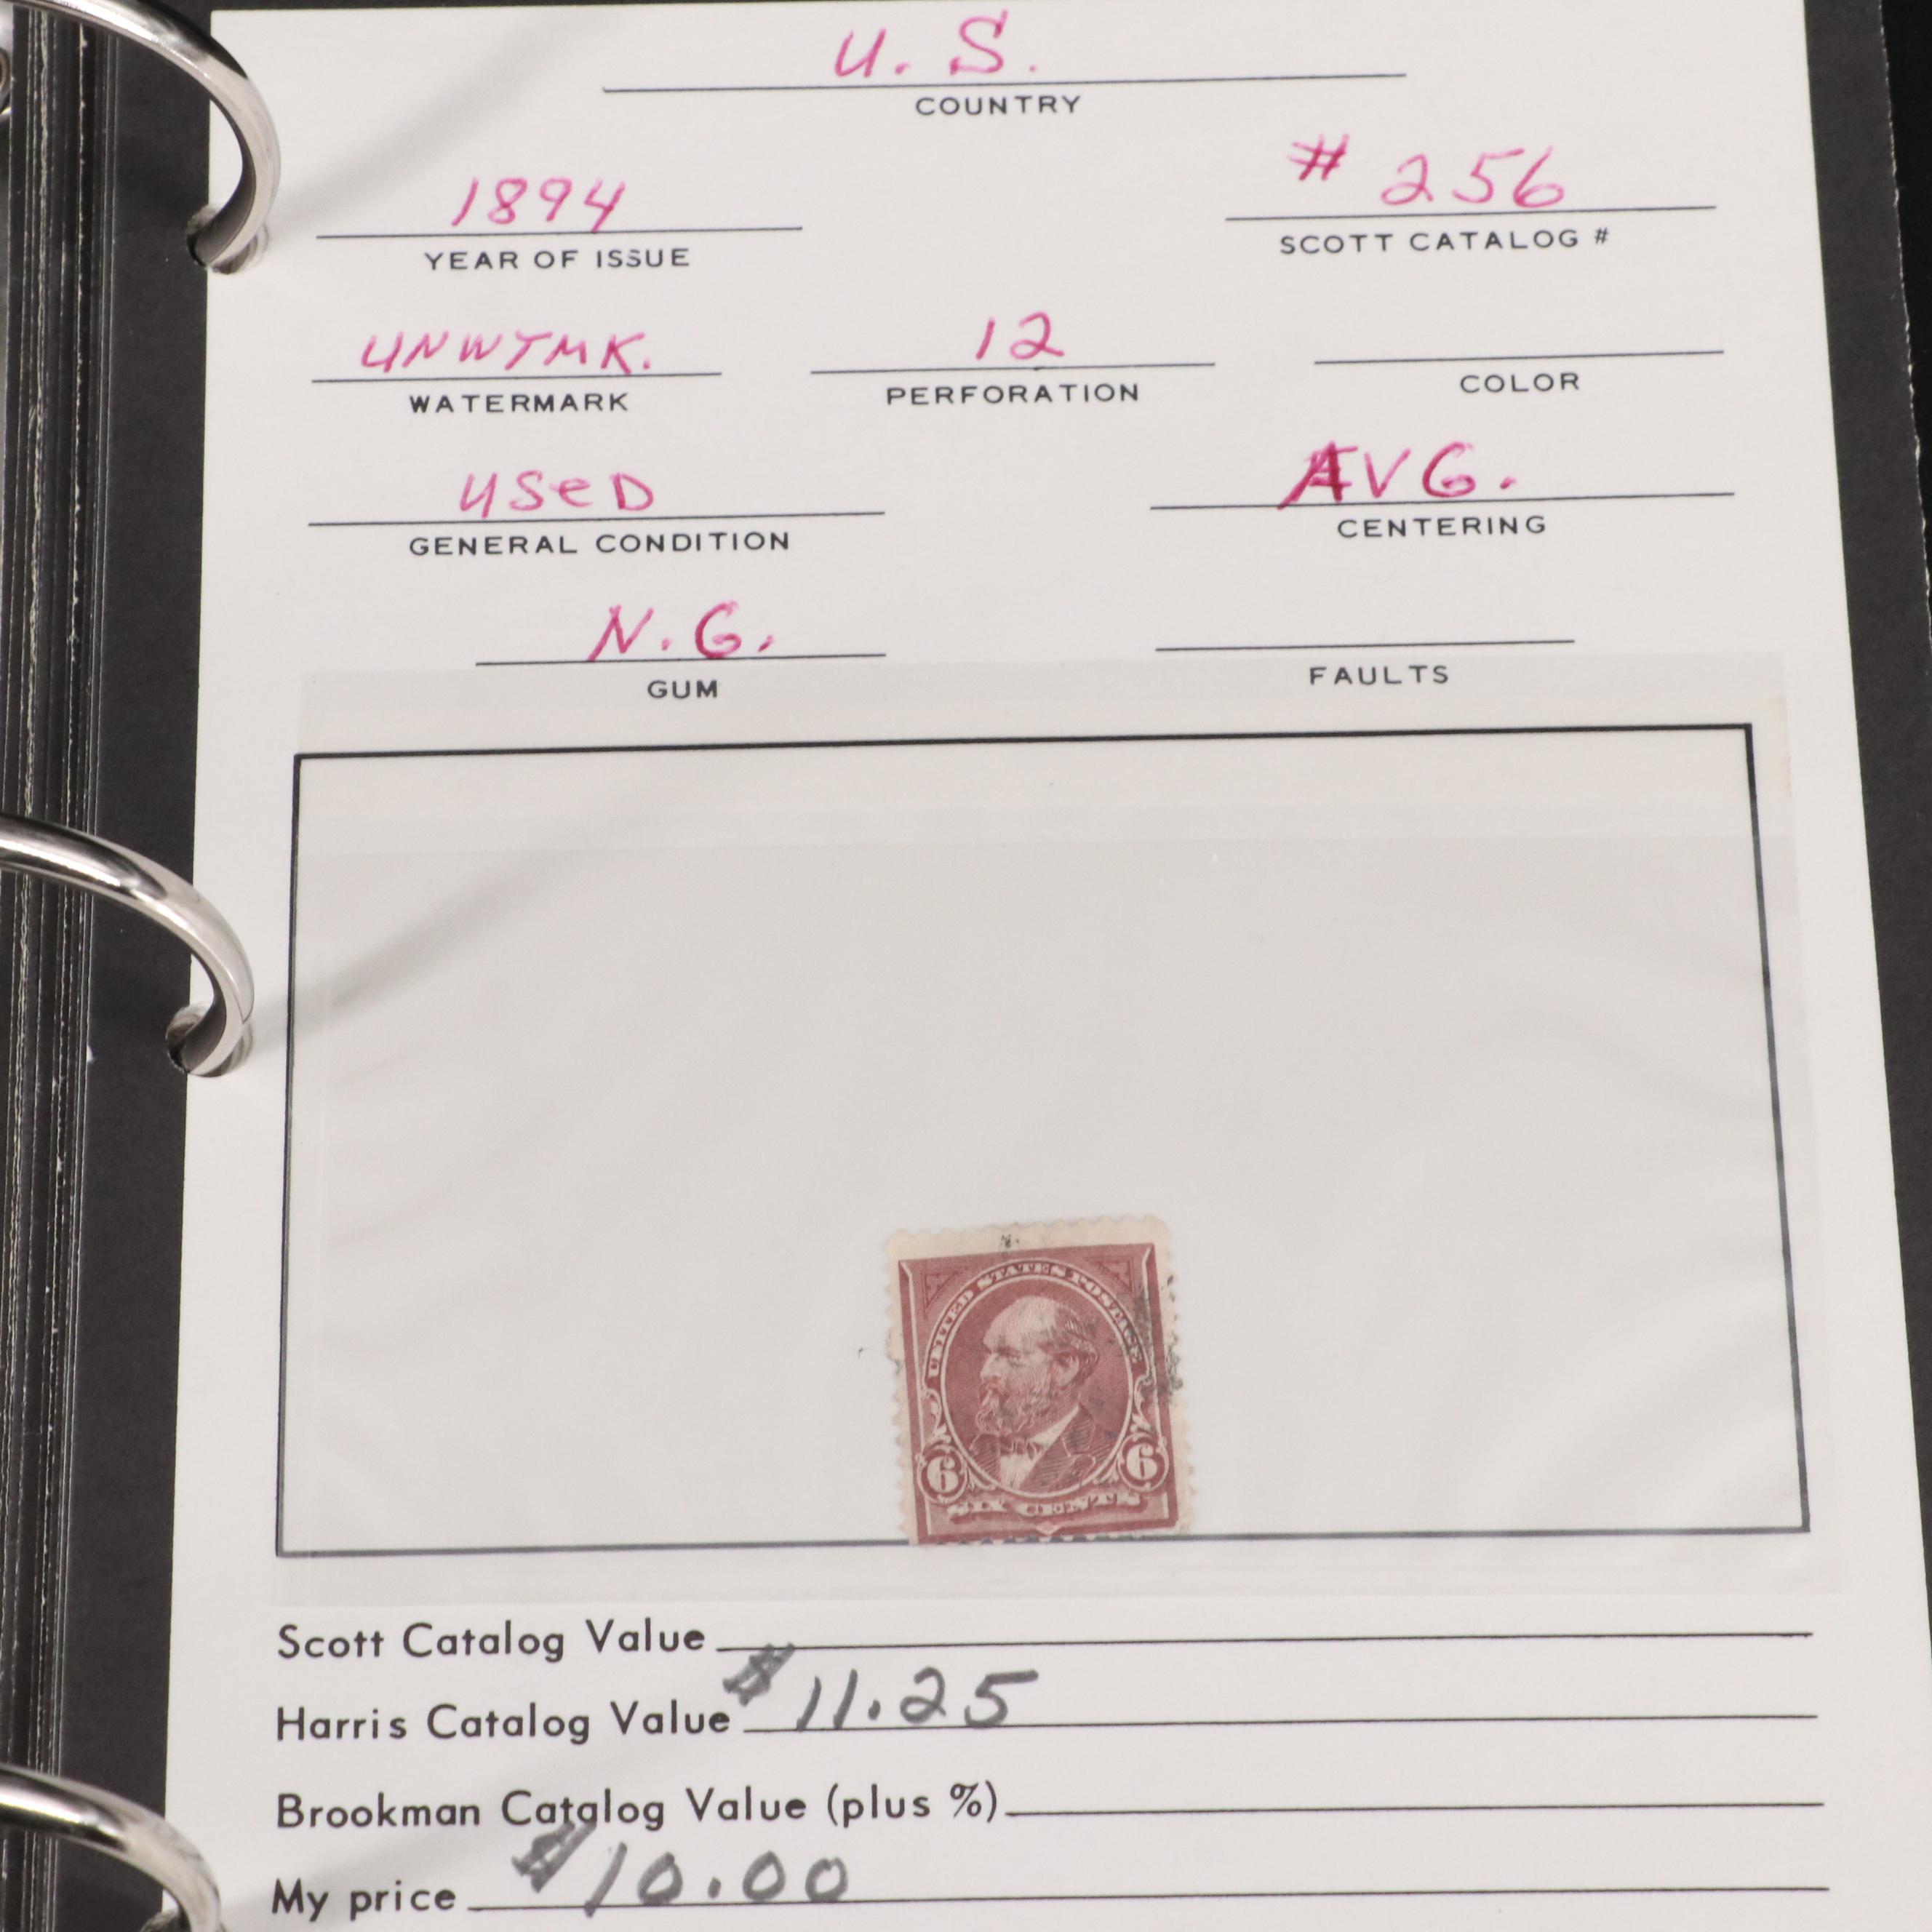 U. S.
COUNTRY
1894
# 256
YEAR OF ISSUE
SCOTT CATALOG #
UNWTMK.
12
WATERMARK
PERFORATION
COLOR
USeD
AVG.
GENERAL CONDITION
CENTERING
N.G.
GUM
FAULTS
UNITED STATES POSTAGE
6
6
SIX CENTS
Scott Catalog Value
Harris Catalog Value $11.25
Brookman Catalog Value (plus %)
My price $10.00